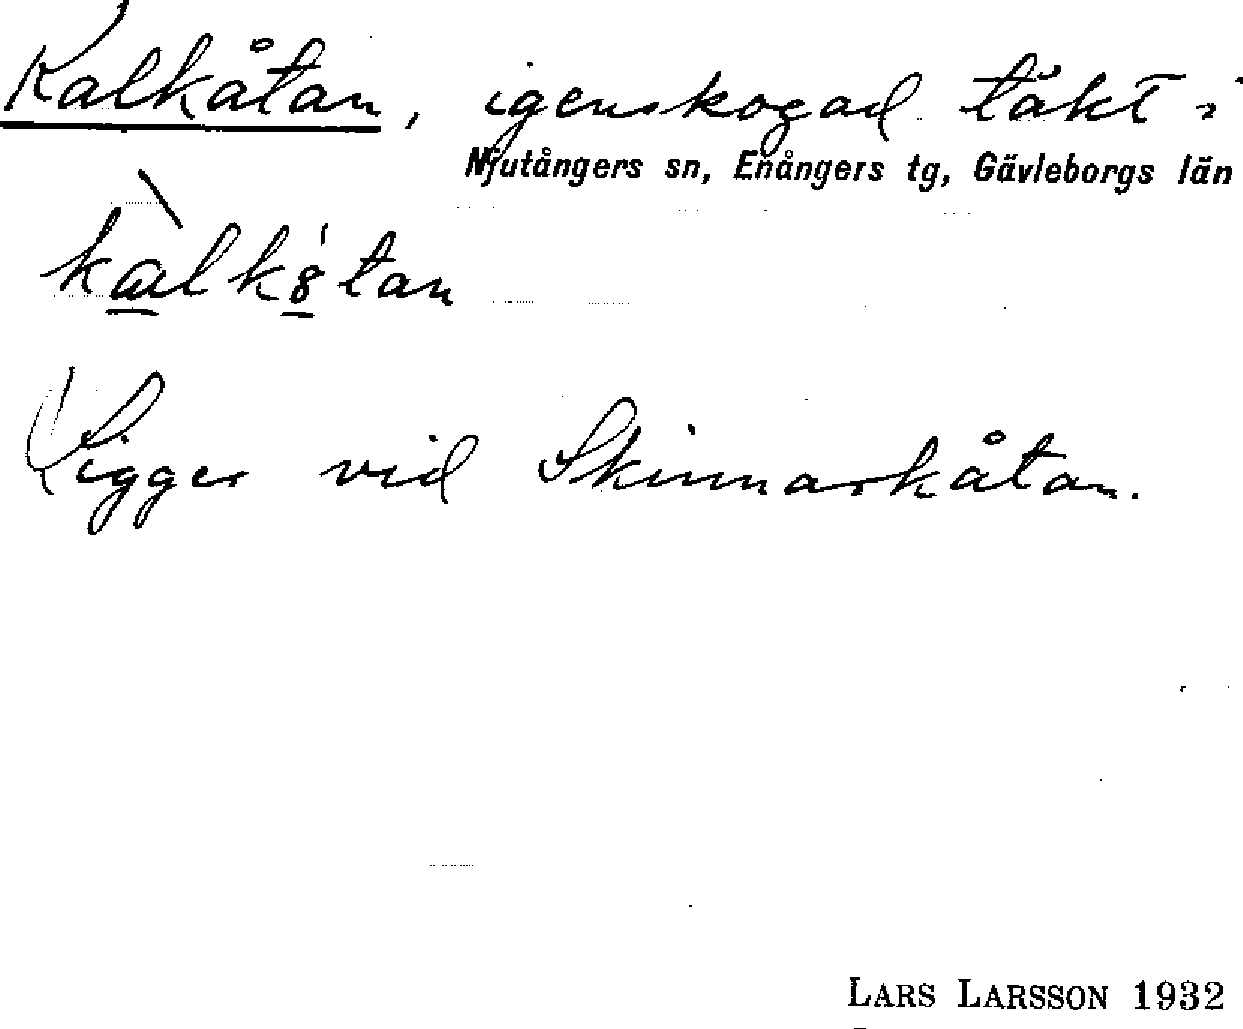 Kalkåtan, igenskogad täkt i
Njutångers sn, Enångers tg, Gävleborgs län
kalk8tan
Ligger vid Skinnarkåtan.
LARS LARSSON 1932